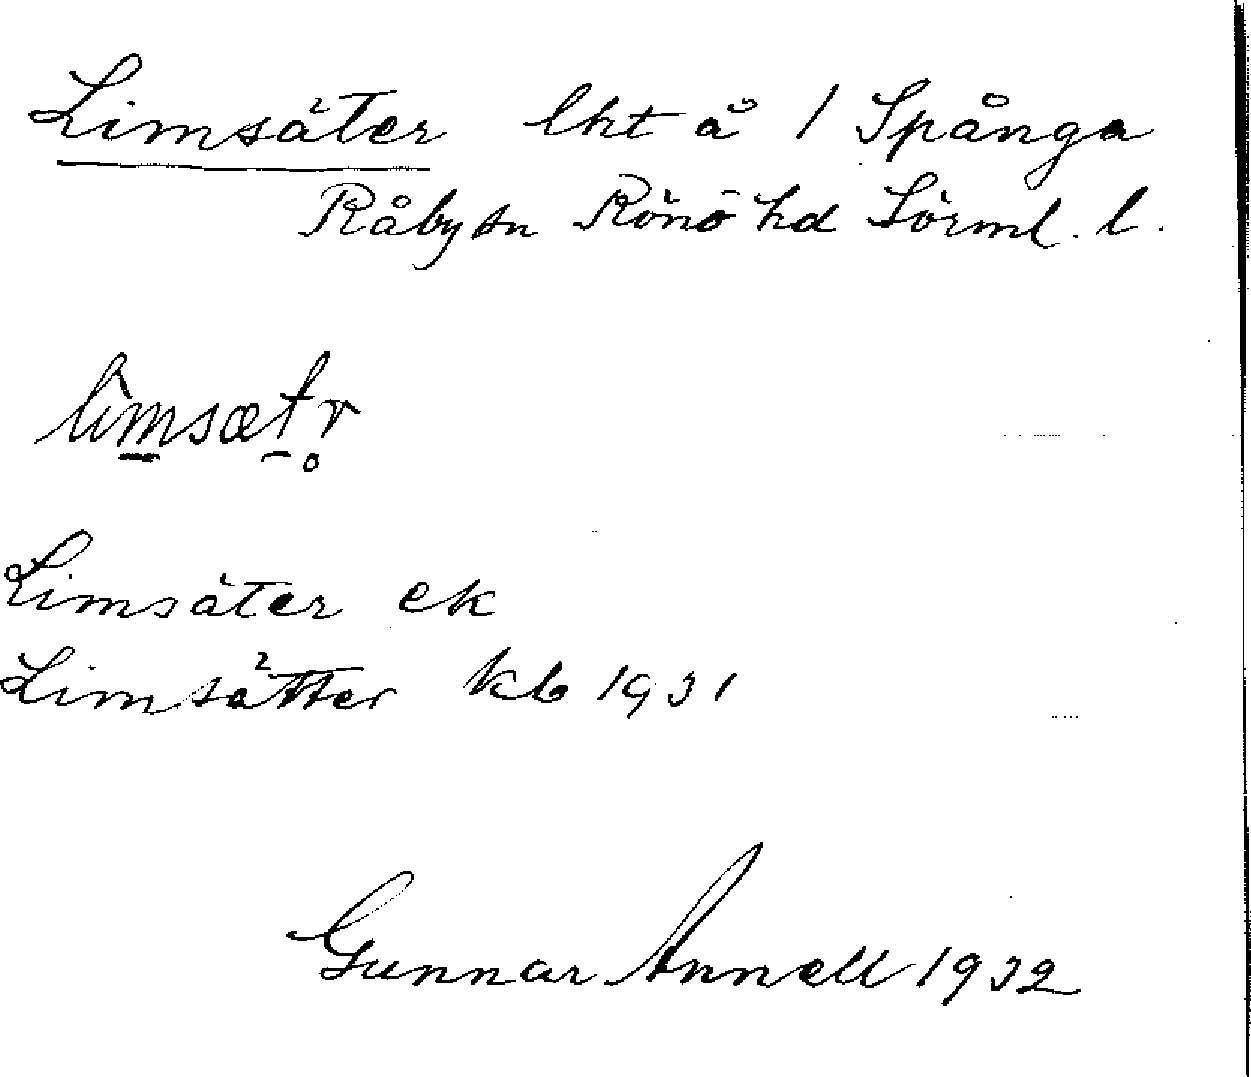 Limsäter lht å 1 Spånga
Råby sn Rönö hd Sörml. l.
lìm̠sæt̠r̥
Limsäter ek
Limsätter kb 1931
Gunnar Annell 1932